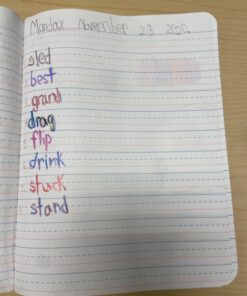 Monday November 23 2020.
sled
best
grand
drag
flip
drink
stuck
stand